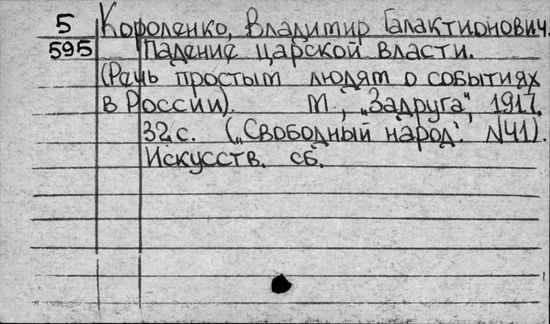 5 Короленко, Владимир Галактионович.
595 Падение царской власти.
(Речь простым людям о событиях
в России). М., „Задруга", 1917.
32 с. („Свободный народ". №41).
Искусств. сб.